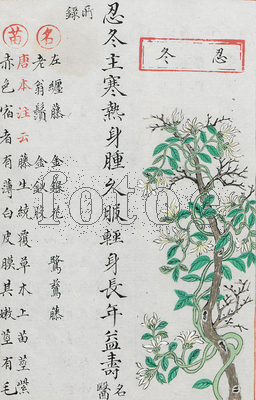 忍冬
忍冬主寒熱身腫久服輕身長年益壽名醫
所錄
名
左纏藤 金銀花 鷺鷥藤
老翁鬚 金釵股
苗
唐本注云藤生繞覆草木上苗莖紫
赤色宿者有薄白皮膜其嫩莖有毛
fotoe